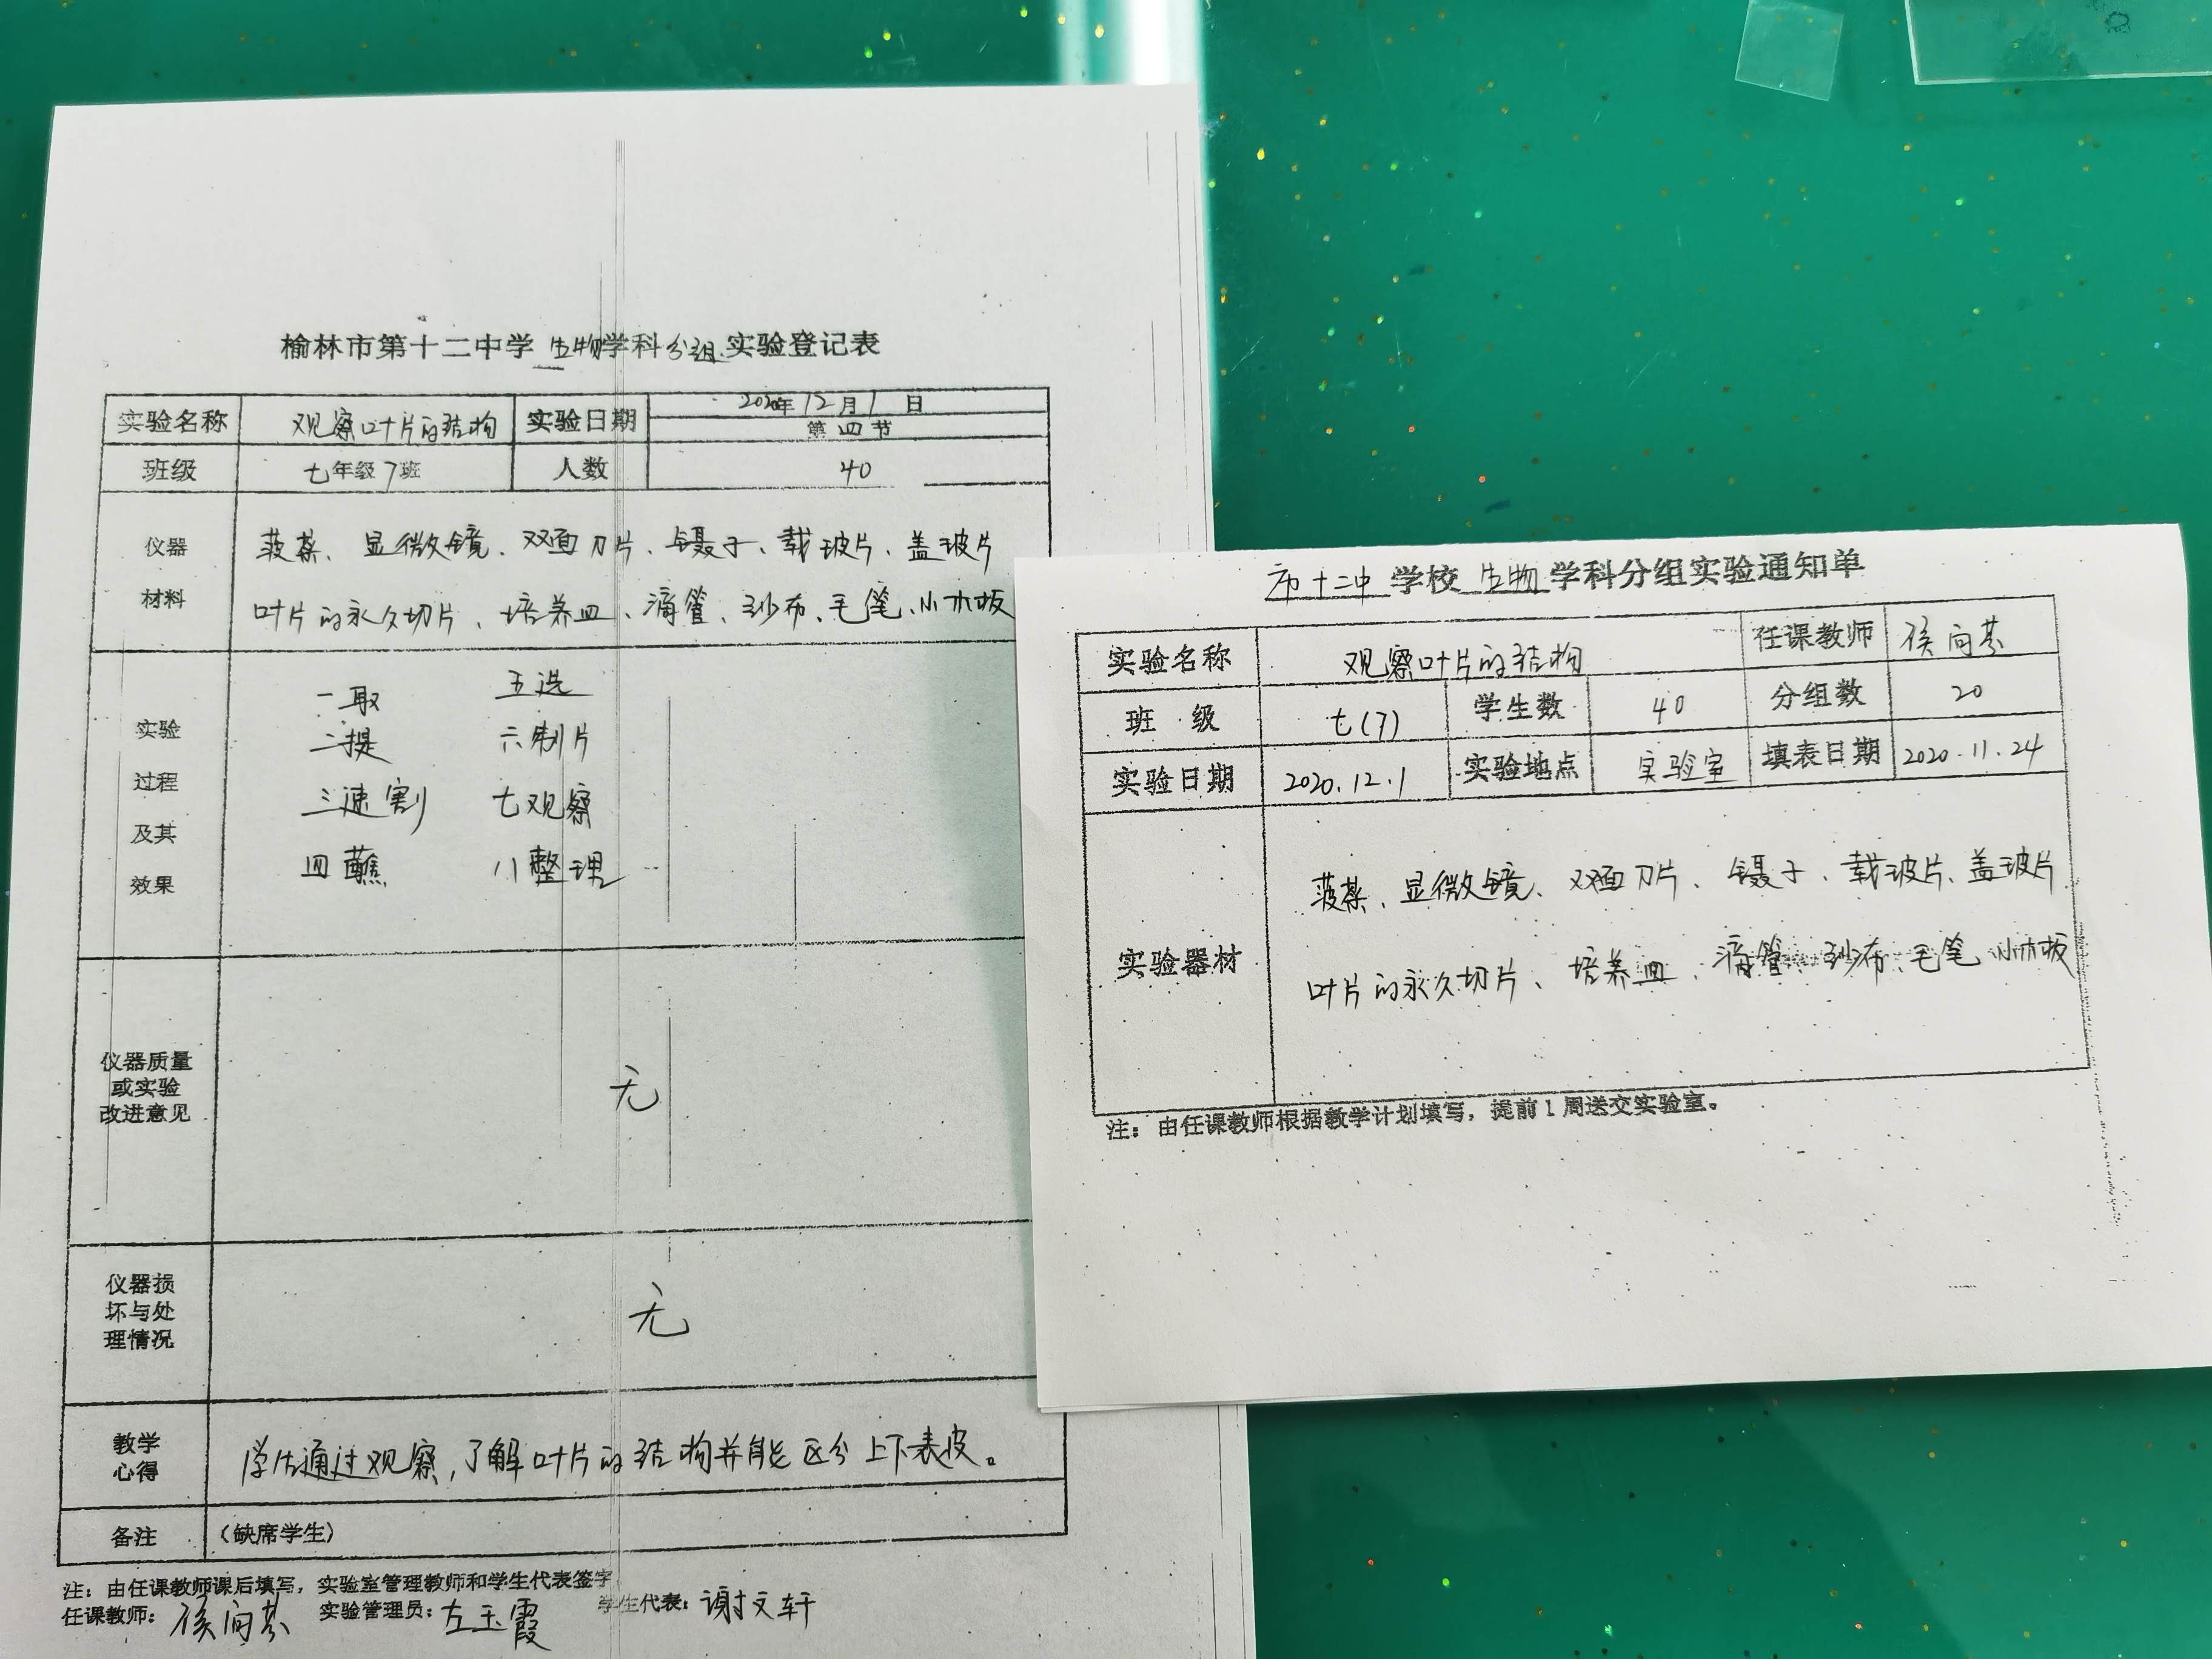 榆林市第十二中学 生物学科分组 实验登记表
实验名称 观察叶片的结构 实验日期 2020年12月1日
第四节
班级 七年级7班 人数 40
仪器 菠菜、显微镜、双面刀片、镊子、载玻片、盖玻片
材料 叶片的永久切片、培养皿、滴管、纱布、毛笔、小木板
实验
过程
及其
效果
一取 五选
二提 六制片
三速割 七观察
四蘸 八整理
仪器质量
或实验
改进意见
无
仪器损
坏与处
理情况
无
教学
心得
学生通过观察,了解叶片的结构并能区分上下表皮。
备注 (缺席学生)
注:由任课教师课后填写,实验室管理教师和学生代表签字
任课教师:侯向芬 实验管理员:左玉霞 学生代表:谢文轩
市十二中 学校 生物 学科分组实验通知单
实验名称 观察叶片的结构 任课教师 侯向芬
班 级 七(7) 学生数 40 分组数 20
实验日期 2020.12.1 实验地点 实验室 填表日期 2020.11.24
实验器材
菠菜、显微镜、双面刀片、镊子、载玻片、盖玻片
叶片的永久切片、培养皿、滴管、纱布、毛笔、小木板
注:由任课教师根据教学计划填写,提前1周送交实验室。